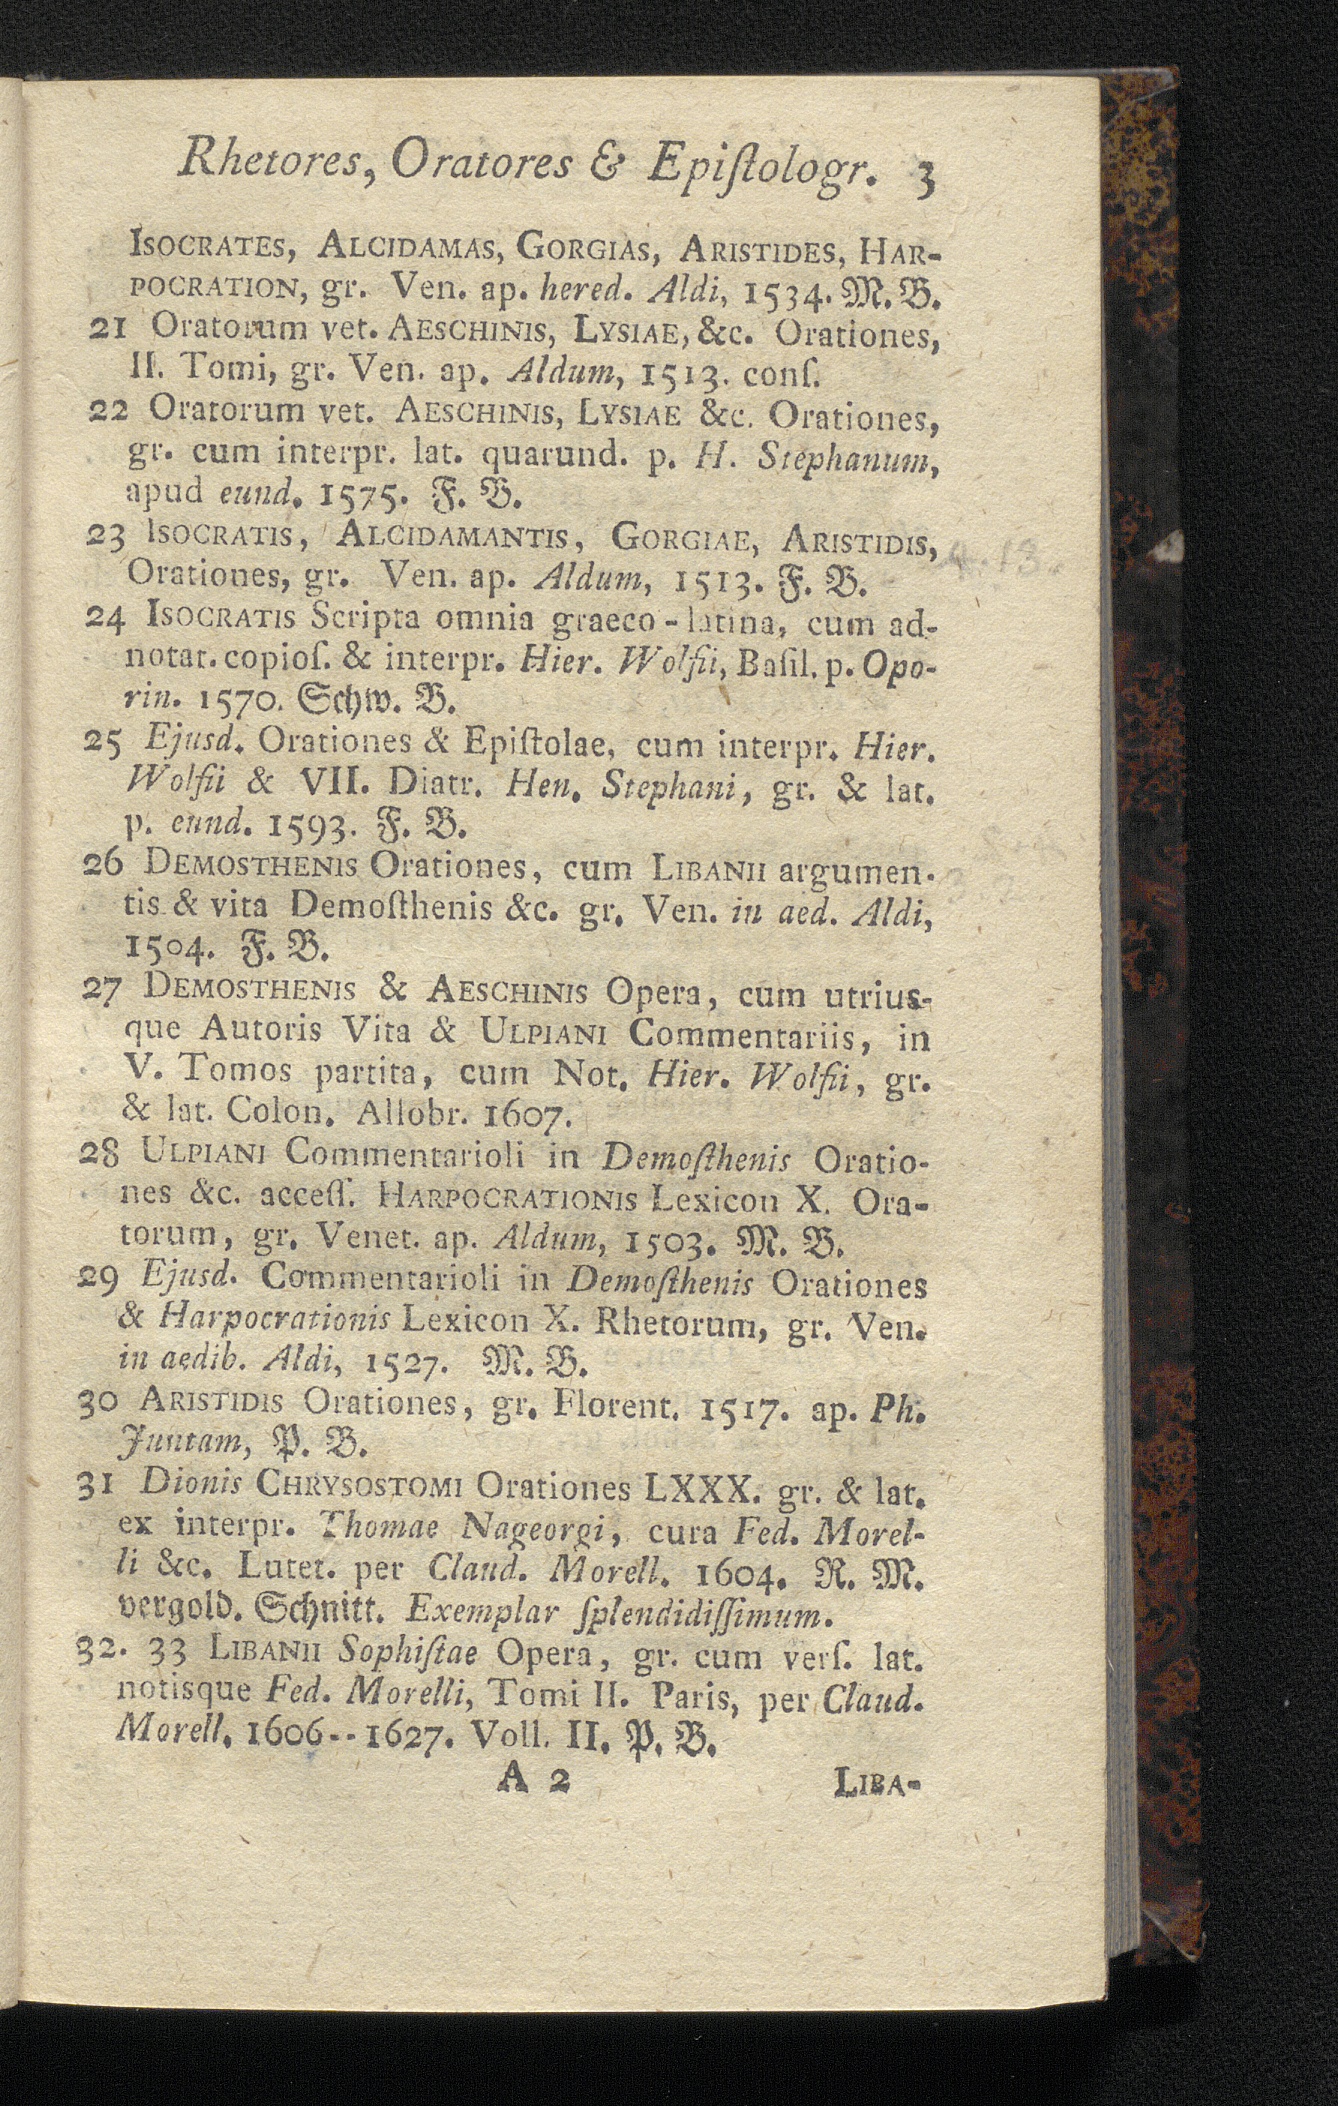 Rhetores, Oratores & Epiſtologr. 3
ISOCRATES, ALCIDAMAS, GORGIAS, ARISTIDES, HAR-
POCRATION, gr. Ven. ap. hered. Aldi, 1534. M. B.
21 Oratorum vet. AESCHINIS, LYSIAE, &c. Orationes,
II. Tomi, gr. Ven. ap. Aldum, 1513. conſ.
22 Oratorum vet. AESCHINIS, LYSIAE &c. Orationes,
gr. cum interpr. lat. quarund. p. H. Stephanum,
apud eund. 1575. F. B.
23 ISOCRATIS, ALCIDAMANTIS, GORGIAE, ARISTIDIS,
Orationes, gr. Ven. ap. Aldum, 1513. F. B.
24 ISOCRATIS Scripta omnia graeco-latina, cum ad-
notat. copioſ. & interpr. Hier. Wolfii, Baſil. p. Opo-
rin. 1570. Schw. B.
25 Ejusd. Orationes & Epiſtolae, cum interpr. Hier.
Wolfii & VII. Diatr. Hen. Stephani, gr. & lat.
p. eund. 1593. F. B.
26 DEMOSTHENIS Orationes, cum LIBANII argumen-
tis & vita Demoſthenis &c. gr. Ven. in aed. Aldi,
1504. F. B.
27 DEMOSTHENIS & AESCHINIS Opera, cum utrius-
que Autoris Vita & ULPIANI Commentariis, in
V. Tomos partita, cum Not. Hier. Wolfii, gr.
& lat. Colon. Allobr. 1607.
28 ULPIANI Commentarioli in Demoſthenis Oratio-
nes &c. acceſſ. HARPOCRATIONIS Lexicon X. Ora-
torum, gr. Venet. ap. Aldum, 1503. M. B.
29 Ejusd. Commentarioli in Demoſthenis Orationes
& Harpocrationis Lexicon X. Rhetorum, gr. Ven.
in aedib. Aldi, 1527. M. B.
30 ARISTIDIS Orationes, gr. Florent. 1517. ap. Ph.
Juntam, P. B.
31 Dionis CHRYSOSTOMI Orationes LXXX. gr. & lat.
ex interpr. Thomae Nageorgi, cura Fed. Morel-
li &c. Lutet. per Claud. Morell. 1604. R. M.
vergold. Schnitt. Exemplar ſplendidiſſimum.
32. 33 LIBANII Sophiſtae Opera, gr. cum verſ. lat.
notisque Fed. Morelli, Tomi II. Paris, per Claud.
Morell. 1606--1627. Voll. II. P. B.
A 2 LIBA-